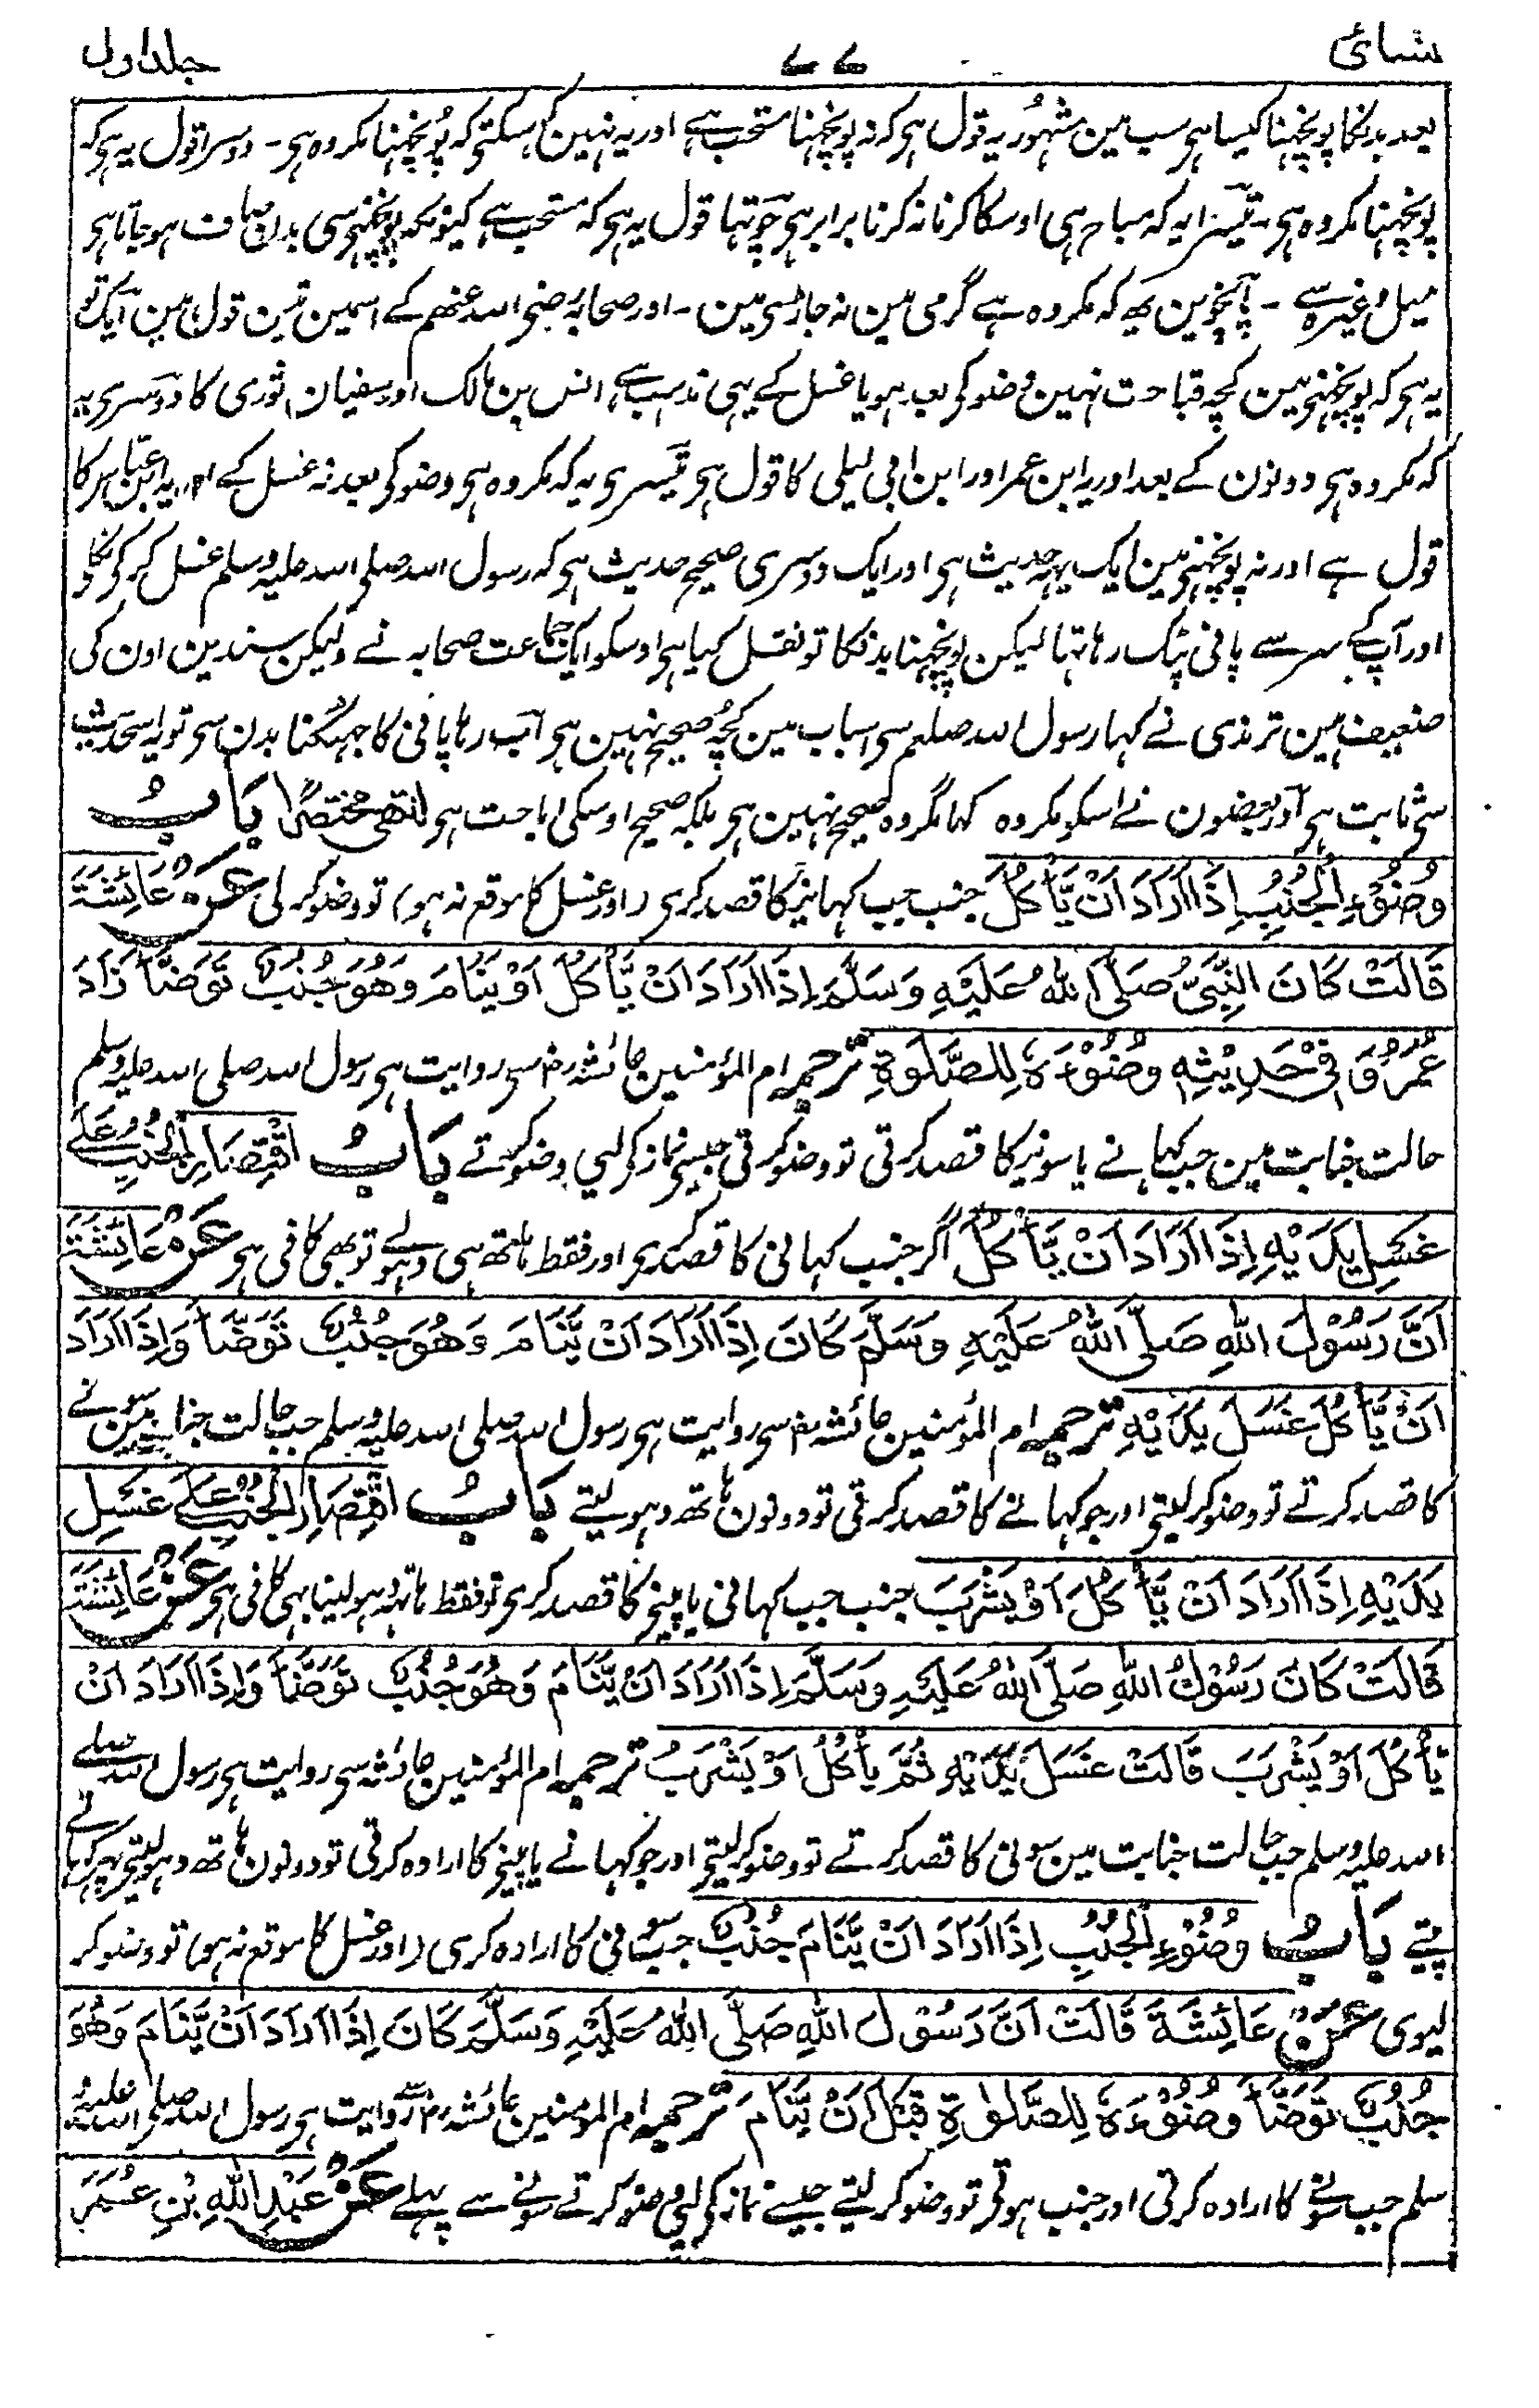 نسائی ۷۷ جلد اول
بعد بدنکا پونچہنا کیسا ہی سب مین مشہور یہ قول ہی کہ نہ پونچہنا مستحب ہے اور یہ نہین کہہ سکتی کہ پونچہنا مکروہ ہی۔ دوسرا قول یہ ہی کہ
پونچہنا مکروہ ہی۔ تیسرا یہ کہ مباح ہی اوسکا کرنا نہ کرنا برابر ہی چوتہا قول یہ ہی کہ مستحب ہے کیونکہ پونچہنی سی بدن صاف ہو جاتا ہی
میل وغیرہ سے۔ پانچوین یہ کہ مکروہ ہے گرمی مین نہ جاڑی مین۔ اور صحابہ رضی اللہ عنہم کے اسمین تین قول ہین ایک تو
یہ ہی کہ پونچہنی مین کچہ قباحت نہین وضو کی بعد ہو یا غسل کے یہی مذہب ہے انس بن مالک اور سفیان ثوری کا دوسری یہ
کہ مکروہ ہی دونون کے بعد اور یہ ابن عمر اور ابن ابی لیلی کا قول ہی تیسری یہ کہ مکروہ ہی وضو کی بعد نہ غسل کے اور یہ ابن عباس کا
قول ہے اور نہ پونچہنی مین ایک یہہ حدیث ہی اور ایک دوسری صحیح حدیث ہی کہ رسول اللہ صلی اللہ علیہ وسلم غسل کر کی نکلی
اور آپ کے سر سے پانی ٹپک رہا تہا لیکن پونچہنا بدنکا تو نقل کیا ہی اوسکو ایک جماعت صحابہ نے ولیکن سندین اون کی
ضعیف ہین ترمذی نے کہا رسول اللہ صلعم سی اس باب مین کچہ صحیح نہین ہی اب رہا پانی کا جہٹکنا بدن سی تو یہ اس حدیث
سی ثابت ہی اور بعضون نے اسکو مکروہ کہا مگر وہ صحیح نہین ہی بلکہ صحیح اوسکی اباحت ہی انتهى مختصرًا بَابُ
وُضُوْءِ الْجُنُبِ اِذَا اَرَادَ اَنْ يَّأْكُلَ جنب جب کہانیکا قصد کری (اور غسل کا موقع نہ ہو) تو وضو کر لی عَنْ عَائِشَةَ
قَالَتْ كَانَ النَّبِيُّ صَلَّى اللهُ عَلَيْهِ وَسَلَّمَ اِذَا اَرَادَ اَنْ يَّأْكُلَ اَوْ يَنَامَ وَهُوَ جُنُبٌ تَوَضَّأَ زَادَ
عَمْرٌو فِيْ حَدِيْثِهٖ وُضُوْءَهٗ لِلصَّلٰوةِ ترجمہ ام المؤمنین عائشہ رض سی روایت ہی رسول اللہ صلی اللہ علیہ وسلم
حالت جنابت مین جب کہانے یا سونیکا قصد کرتی تو وضو کرتی جیسی نماز کو لیی وضو کرتے بَابُ اقْتِصَارِ الْجُنُبِ عَلٰى
غَسْلِ يَدَيْهِ اِذَا اَرَادَ اَنْ يَّأْكُلَ اگر جنب کہانی کا قصد کری اور فقط ہاتھ ہی دہولے تو بھی کافی ہی عَنْ عَائِشَةَ
اَنَّ رَسُوْلَ اللهِ صَلَّى اللهُ عَلَيْهِ وَسَلَّمَ كَانَ اِذَا اَرَادَ اَنْ يَّنَامَ وَهُوَ جُنُبٌ تَوَضَّأَ وَاِذَا اَرَادَ
اَنْ يَّأْكُلَ غَسَلَ يَدَيْهِ ترجمہ ام المؤمنین عائشہ رض سی روایت ہی رسول اللہ صلی اللہ علیہ وسلم جب حالت جنابت مین سونے
کا قصد کرتے تو وضو کر لیتی اور جو کہانے کا قصد کرتی تو دونون ہاتھ دہولیتے بَابُ اقْتِصَارِ الْجُنُبِ عَلٰى غَسْلِ
يَدَيْهِ اِذَا اَرَادَ اَنْ يَّأْكُلَ اَوْ يَشْرَبَ جنب جب کہانی یا پینی کا قصد کری تو فقط ہاتہہ دہولینا بہی کافی ہی عَنْ عَائِشَةَ
قَالَتْ كَانَ رَسُوْلُ اللهِ صَلَّى اللهُ عَلَيْهِ وَسَلَّمَ اِذَا اَرَادَ اَنْ يَّنَامَ وَهُوَ جُنُبٌ تَوَضَّأَ وَاِذَا اَرَادَ اَنْ
يَّأْكُلَ اَوْ يَشْرَبَ قَالَتْ غَسَلَ يَدَيْهِ ثُمَّ يَأْكُلُ اَوْ يَشْرَبُ ترجمہ ام المؤمنین عائشہ سی روایت ہی رسول اللہ صلے
اللہ علیہ وسلم جب حالت جنابت مین سونی کا قصد کرتے تو وضو کر لیتی اور جو کہانے یا پینی کا ارادہ کرتی تو دونون ہاتھ دہولیتی پہر کہاتے
پیتے بَابُ وُضُوْءِ الْجُنُبِ اِذَا اَرَادَ اَنْ يَّنَامَ جُنُبٌ جب سونی کا ارادہ کری (اور غسل کا موقع نہ ہو) تو وضو کر
لیوی عَنْ عَائِشَةَ قَالَتْ اَنَّ رَسُوْلَ اللهِ صَلَّى اللهُ عَلَيْهِ وَسَلَّمَ كَانَ اِذَا اَرَادَ اَنْ يَّنَامَ وَهُوَ
جُنُبٌ تَوَضَّأَ وُضُوْءَهٗ لِلصَّلٰوةِ قَبْلَ اَنْ يَّنَامَ ترجمہ ام المومنین عائشہ رض سے روایت ہی رسول اللہ صلی اللہ علیہ
سلم جب سونے کا ارادہ کرتی اور جنب ہوتی تو وضو کر لیتے جیسے نماز کی لیی وضو کرتے سونے سے پہلے عَنْ عَبْدِ اللهِ بْنِ عُمَرَ